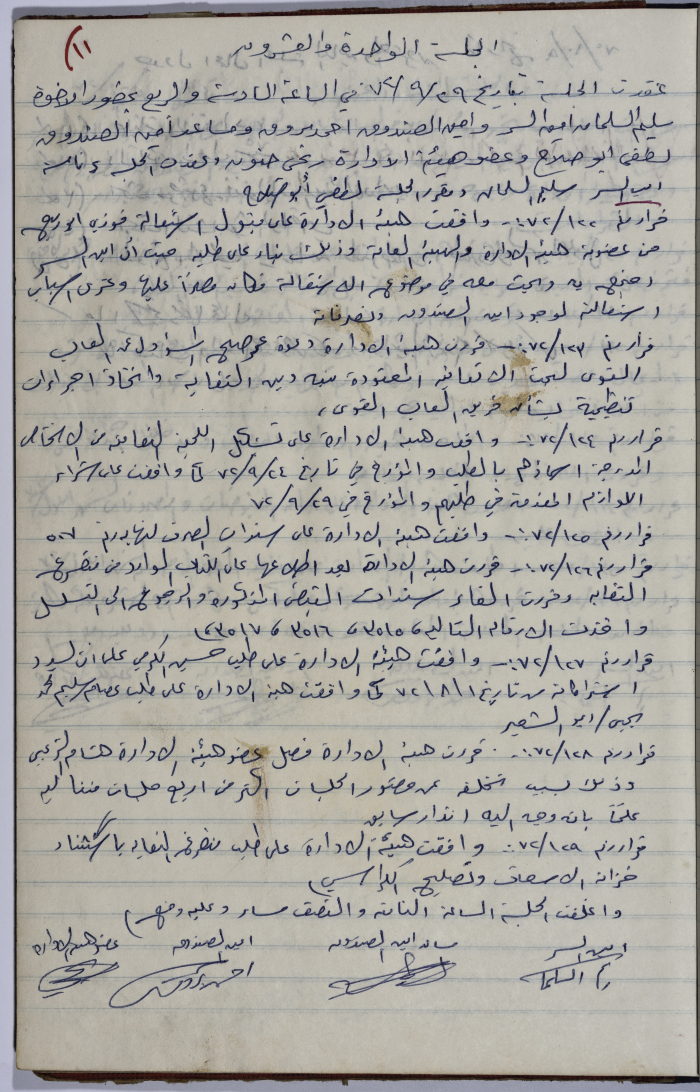 ١١
الجلسة الواحدة والعشرون
عقدت الجلسة بتاريخ ٢٩/٩/٧٢ في الساعة السادسة والربع بحضور الاخوة
سليم السلمان امين السر وامين الصندوق احمد مرزوق ومساعد امين الصندوق
لطفي ابو صلاح وعضو هيئة الادارة وعقدت الجلسة برئاسة
امين السر سليم السلمان ومقرر الجلسة لطفي أبو صلاح
قرار رقم ٧٢/١٢٢:- وافقت هيئة الادارة على قبول استقالة فوزي
من عضوية هيئة الادارة والهيئة العامة وذلك بناء على طلبه حيث أن امين السر
اجتمع به وبحث معه في موضوع الاستقالة فكان مصراً عليها وعزى اسباب
استقالته لوجود امين الصندوق وتصرفاته
قرار رقم ٧٢/١٢٣:- قررت هيئة الادارة دعوة المسؤول عن العاب
القوى لبحث الاتفاقية المعقودة بينه وبين النقابة واتخاذ اجراءات
تنظيمية بشأن فريق العاب القوى،
قرار رقم ٧٢/١٢٤:- وافقت هيئة الادارة على تشكيل اللجنة النقابية من الاشخاص
المدرجة اسماؤهم بالطلب والمؤرخ في تاريخ ٧٢/٩/٢٤ كما وافقت على شراء
اللوازم المقدمة في طلبهم والمؤرخ في ٧٢/٩/٢٩
قرار رقم ٧٢/١٢٥:- وافقت هيئة الادارة على سندات الصرف لنهاية رقم ٥٥٧
قرار رقم ٧٢/١٢٦:- قررت هيئة الادارة بعد اطلاعها على الكتاب الوارد من متفرغ
النقابة وقررت الغاء سندات القبض المذكورة والرجوع الى التسلسل
واخذت الارقام التالية ٣٥١٥ ، ٣٥١٦ ، ٣٥١٧ ،
قرار رقم ٧٢/١٢٧:- وافقت هيئة الادارة على طلب حسين الكرمي على ان يسدد
اشتراكاته من تاريخ ٧٢/٨/١ كما وافقت هيئة الادارة على طلب عصام سليم محمد
يحيى / ابو الشعير
قرار رقم ٧٢/١٢٨:- قررت هيئة الادارة فصل عضو هيئة الادارة هشام الزعبي
وذلك بسبب تخلفه عن حضور الجلسات اكثر من اربع جلسات متتالية
علماً بان وجه اليه انذار سابق
قرار رقم ٧٢/١٢٩:- وافقت هيئة الادارة على طلب متفرغ النقابة باستثناء
خزانة الاسعاف وتصليح الكراسي
واغلقت الجلسة الساعة الثامنة والنصف مساء وعليه وقع
امين السر مساعد امين الصندوق امين الصندوق عضو هيئة الادارة